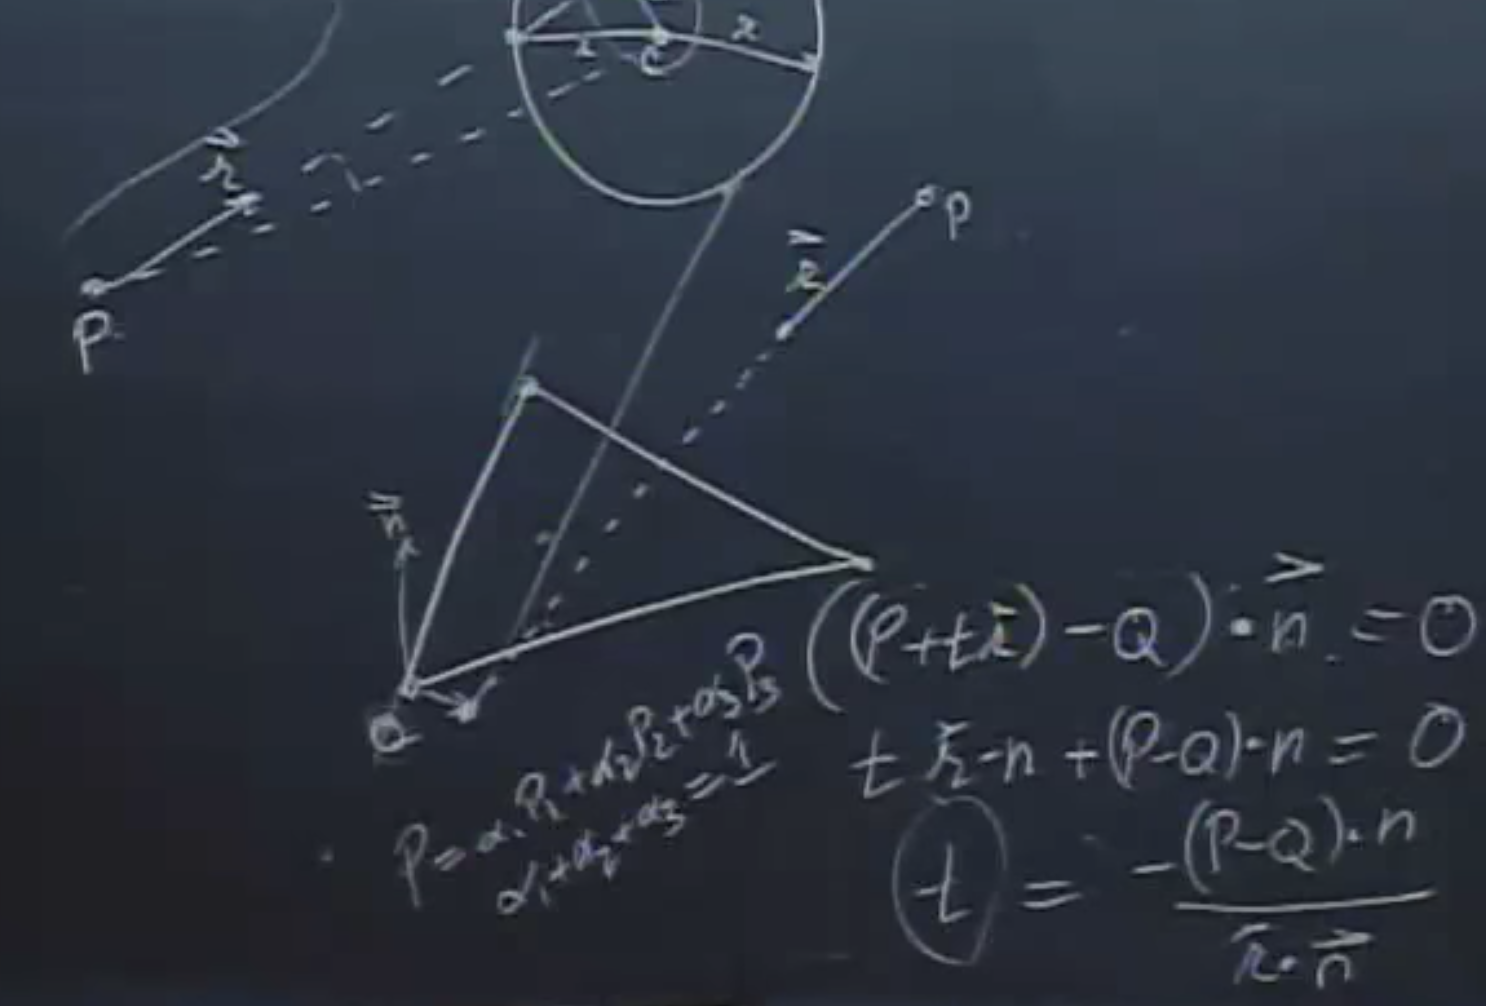 r
C
r
r⃗
P
r⃗
P
n⃗
Q
P = α₁P₁ + α₂P₂ + α₃P₃
α₁ + α₂ + α₃ = 1
((P + t r⃗) - Q) · n⃗ = 0
t r⃗ · n + (P - Q) · n = 0
t = -(P - Q) · n / r⃗ · n⃗